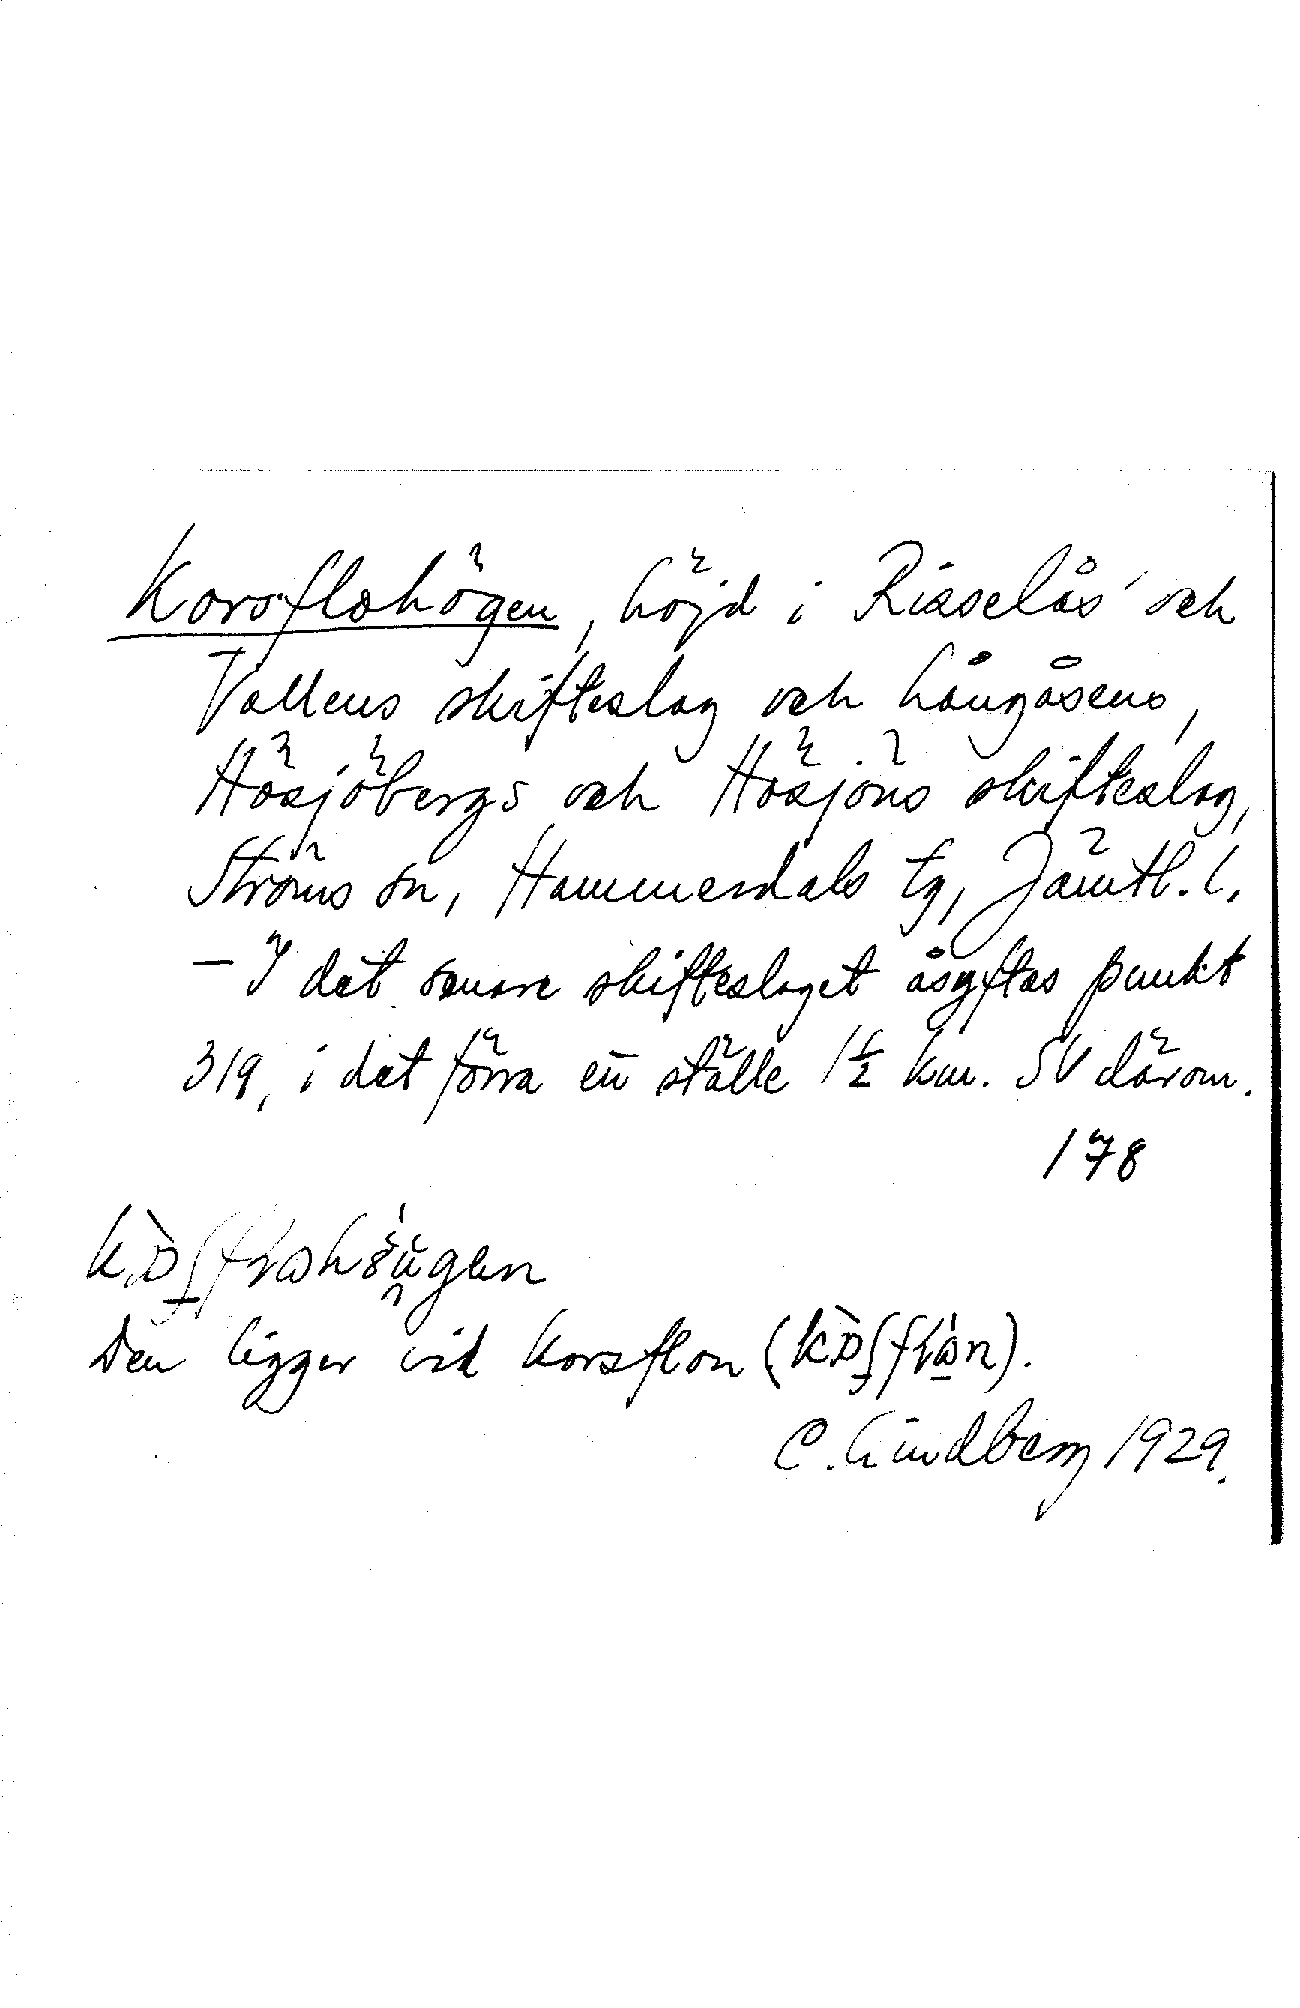 Korsflohögen, höjd i Risselås' och
Vallens skifteslag och Långåsens,
Hösjöbergs och Hösjöns skifteslag,
Ströms sn, Hammerdals tg, Jämtl. l.
— I det senare skifteslaget åsyftas punkt
319, i det förra en ställe 1 1/2 km. SV därom.
178
Den ligger vid Korsflon
C. Lindberg 1929.